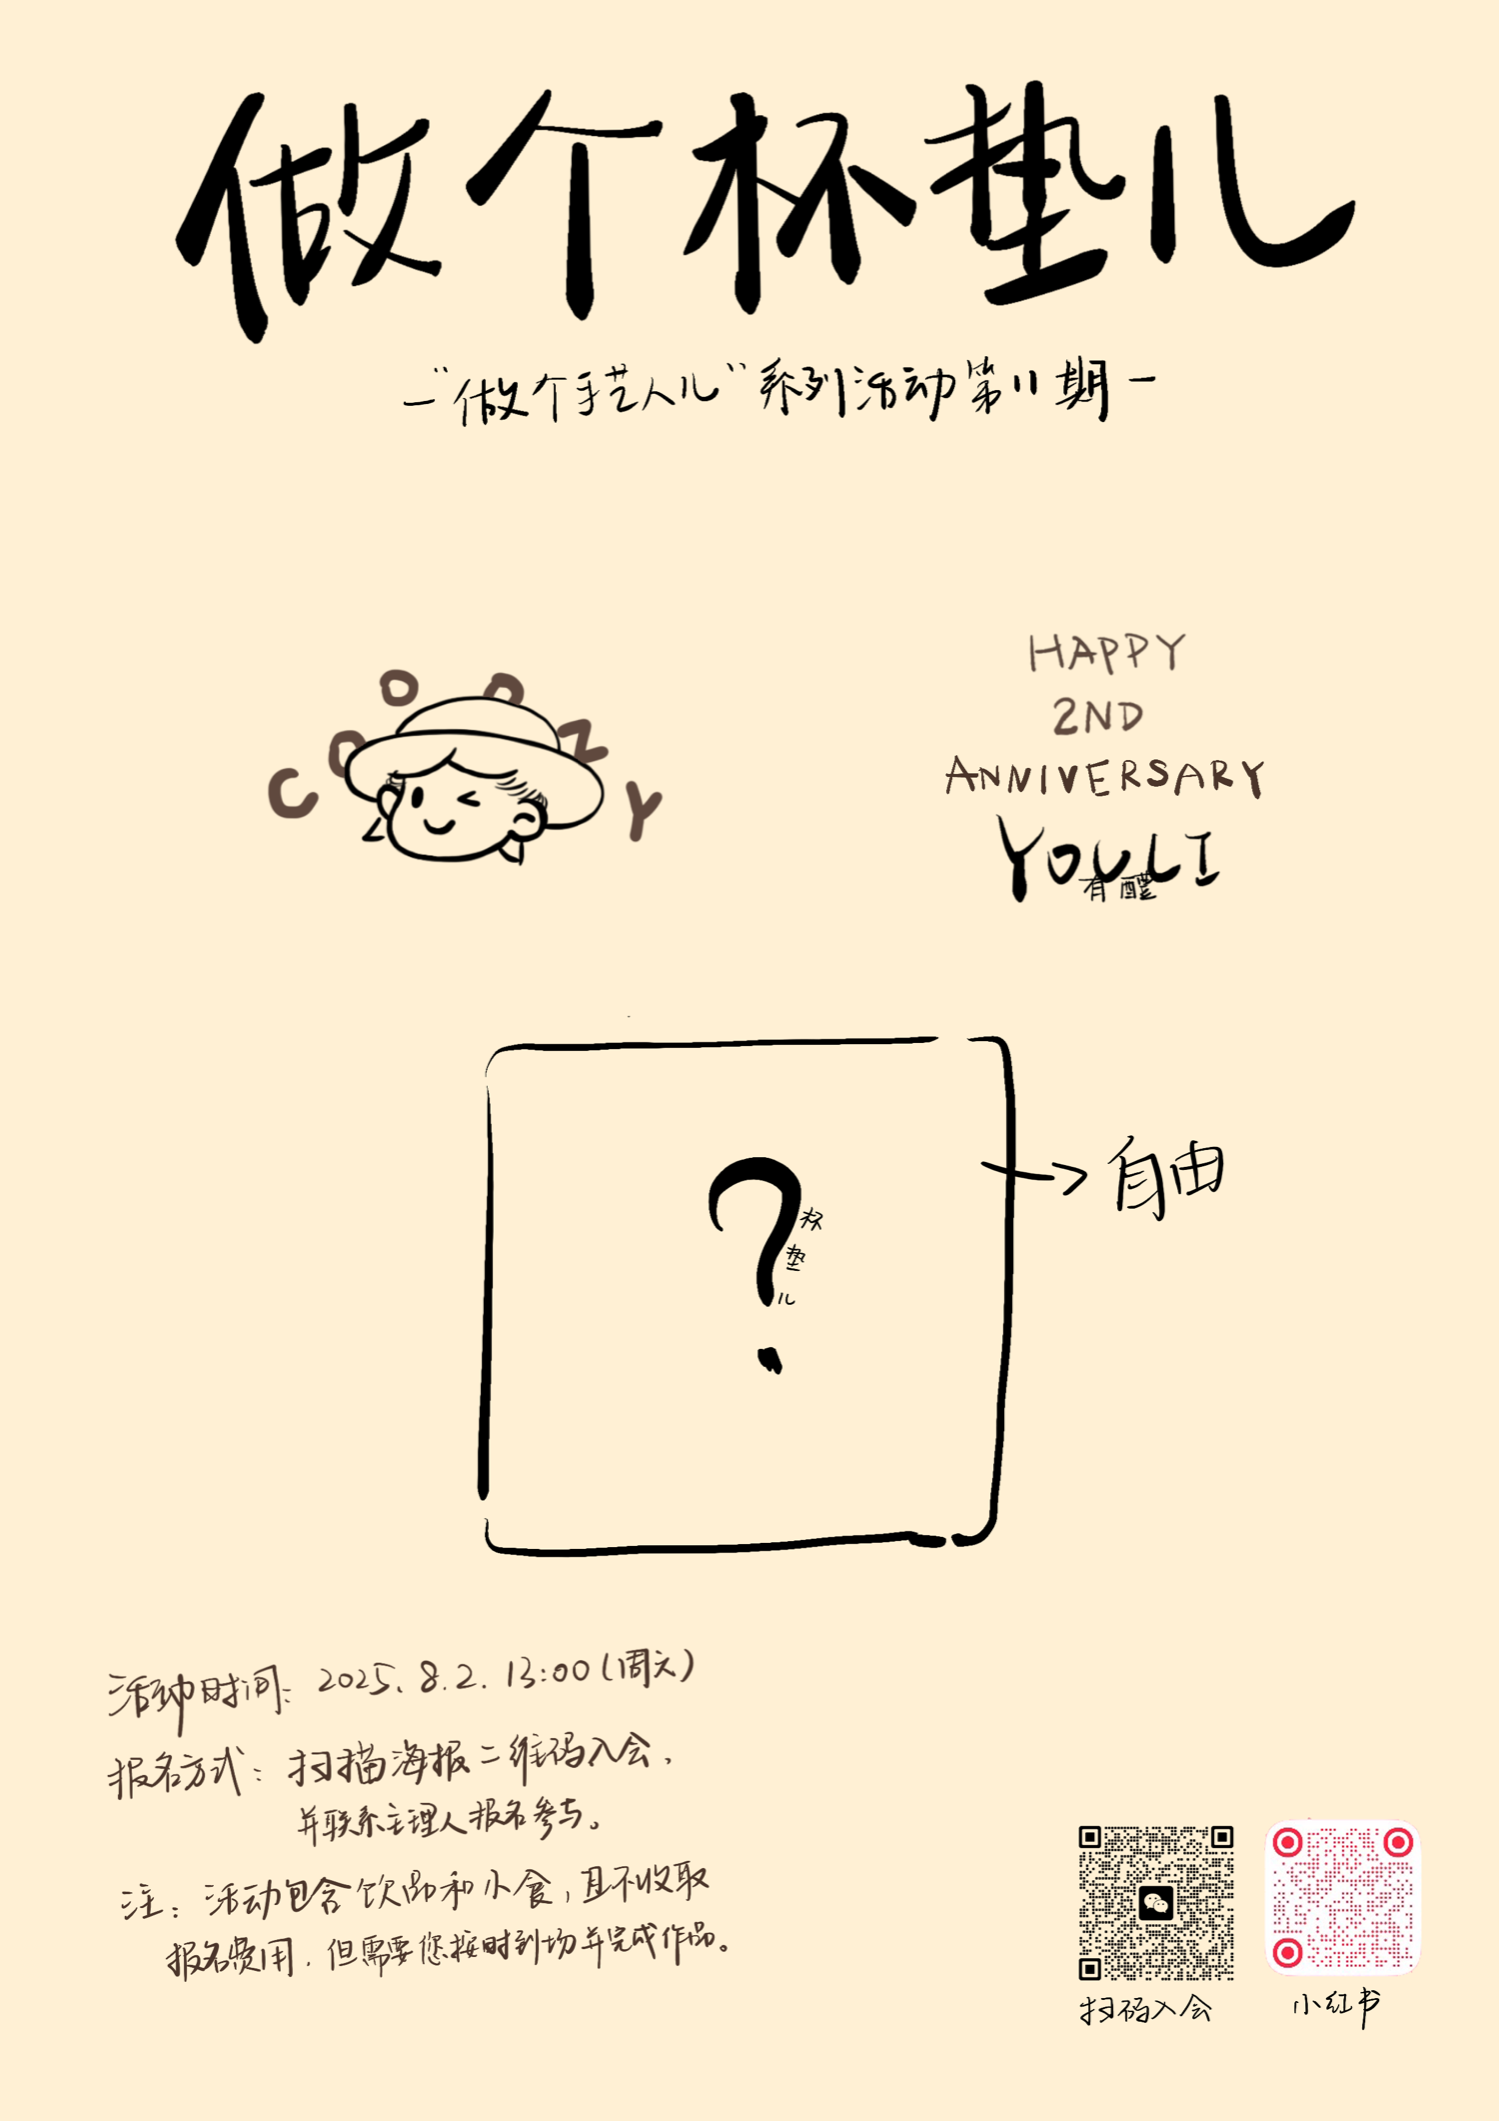 做个杯垫儿
—“做个手艺人儿”系列活动第11期—
COOOZY
HAPPY
2ND
ANNIVERSARY
YOULI
有醴
?
杯
垫
儿
自由
活动时间: 2025.8.2. 13:00(周六)
报名方式: 扫描海报二维码入会,
并联系主理人报名参与。
注: 活动包含饮品和小食,且不收取
报名费用,但需要您按时到场并完成作品。
扫码入会
小红书